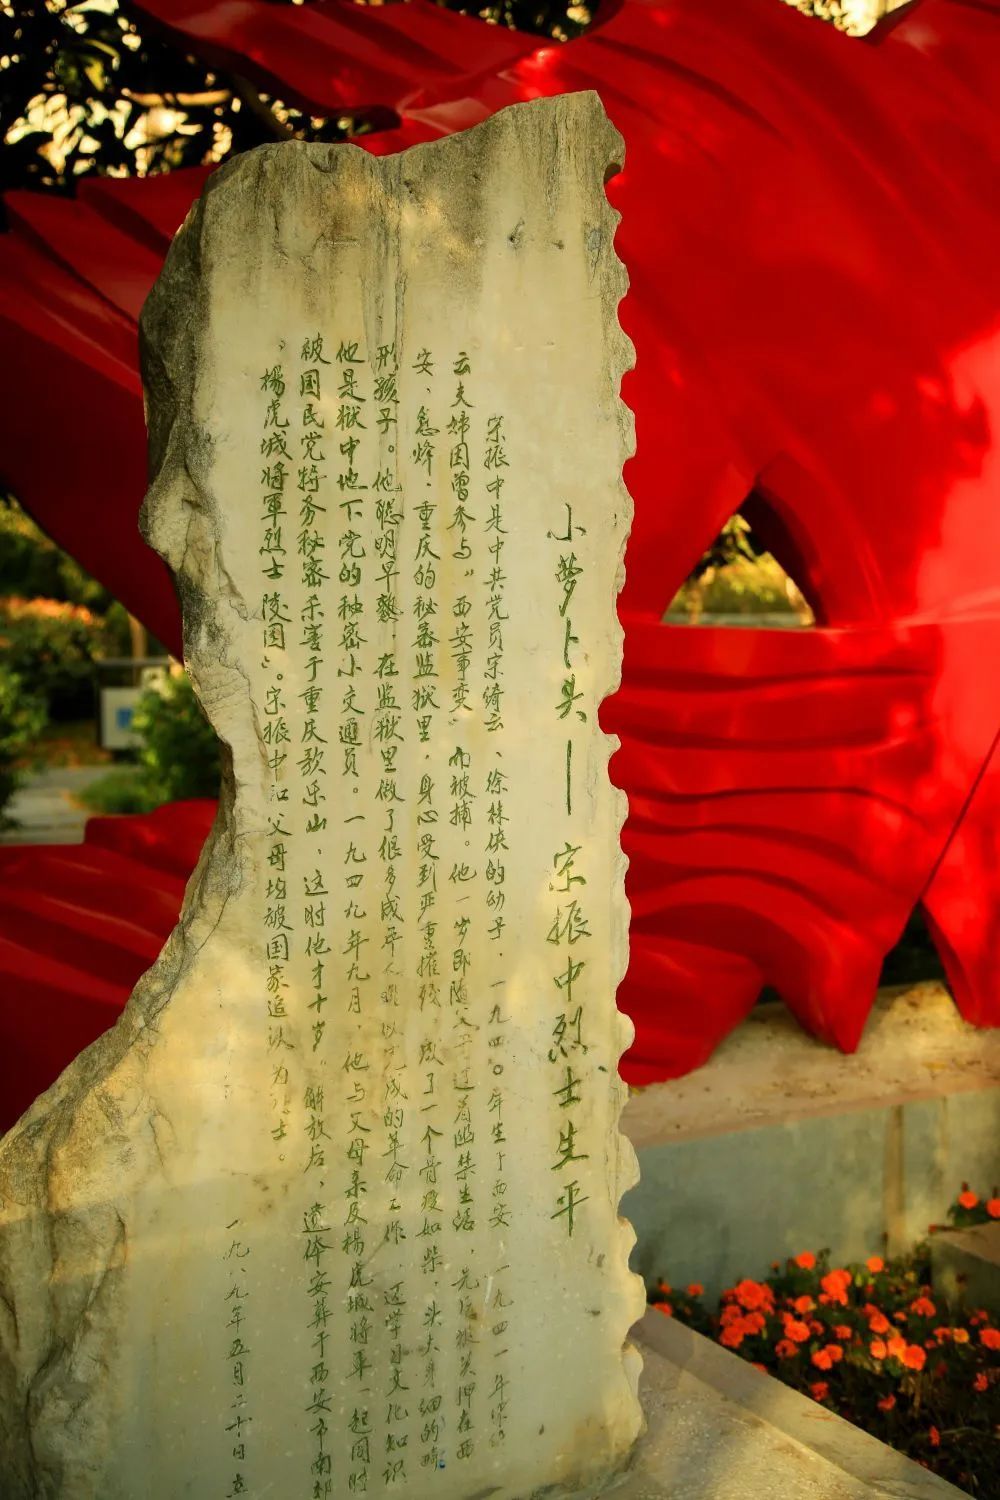 小萝卜头——宋振中烈士生平
宋振中是中共党员宋绮云、徐林侠的幼子，一九四〇年生于西安，一九四一年
云夫妇因曾参与“西安事变”而被捕。他一岁即随父母过着幽禁生活，先后被关押在西
安、息烽、重庆的秘密监狱里，身心受到严重摧残，成了一个骨瘦如柴，头大身细的畸
形孩子。他聪明早熟，在监狱里做了很多成年人难以完成的革命工作，还学习文化知识
他是狱中地下党的秘密小交通员。一九四九年九月，他与父母亲及楊虎城将軍一起同时
被国民党特务秘密杀害于重庆歌乐山，这时他才十岁。解放后，遗体安葬于西安市南郊
“楊虎城将軍烈士陵园”。宋振中和父母均被国家追认为烈士。
一九八九年五月二十日立